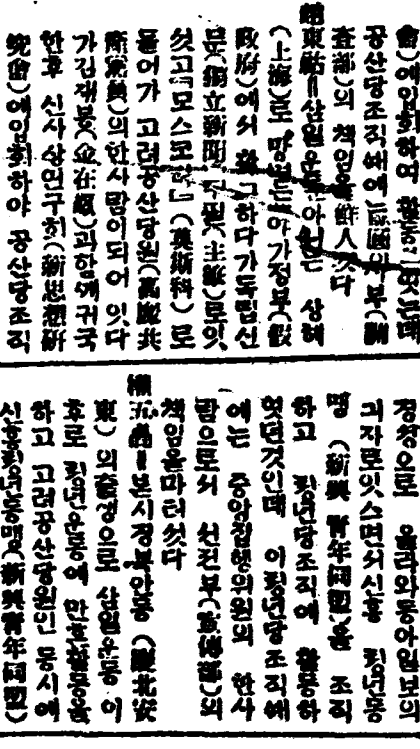 會)에입회하여
공산당조직때에 (調
査部)의 책임을
趙東祜=삼일운동이 상해
(上海)로 가정부(假
政府)에서 하다가독립신
문(獨立新聞)주필(主筆)로잇
섯고『모스코바』(莫斯科)로
들어가 고려공산당원(高麗共
産黨員)의한사람이되어 잇다
가김재봉(金在鳳)과함께귀국
한후 신사상연구회(新思想硏
究會)에입회하야 공산당조직
정상으로 올라와동아일보의
긔자로잇스면서신흥 청년동
맹 (新興靑年同盟)을 조직
하고 청년당조직에 활동하
엿던것인데 이청년당조직때
에는 중앙집행위원의 한사
람으로서 선전부(宣傳部)의
책임을마터섯다
權五卨=본시경북안동 (慶北安
東)의출생으로 삼일운동 이
후로 청년운동에 만흔활동을
하고 고려공산당원인 동시에
신흥청년동맹(新興靑年同盟)